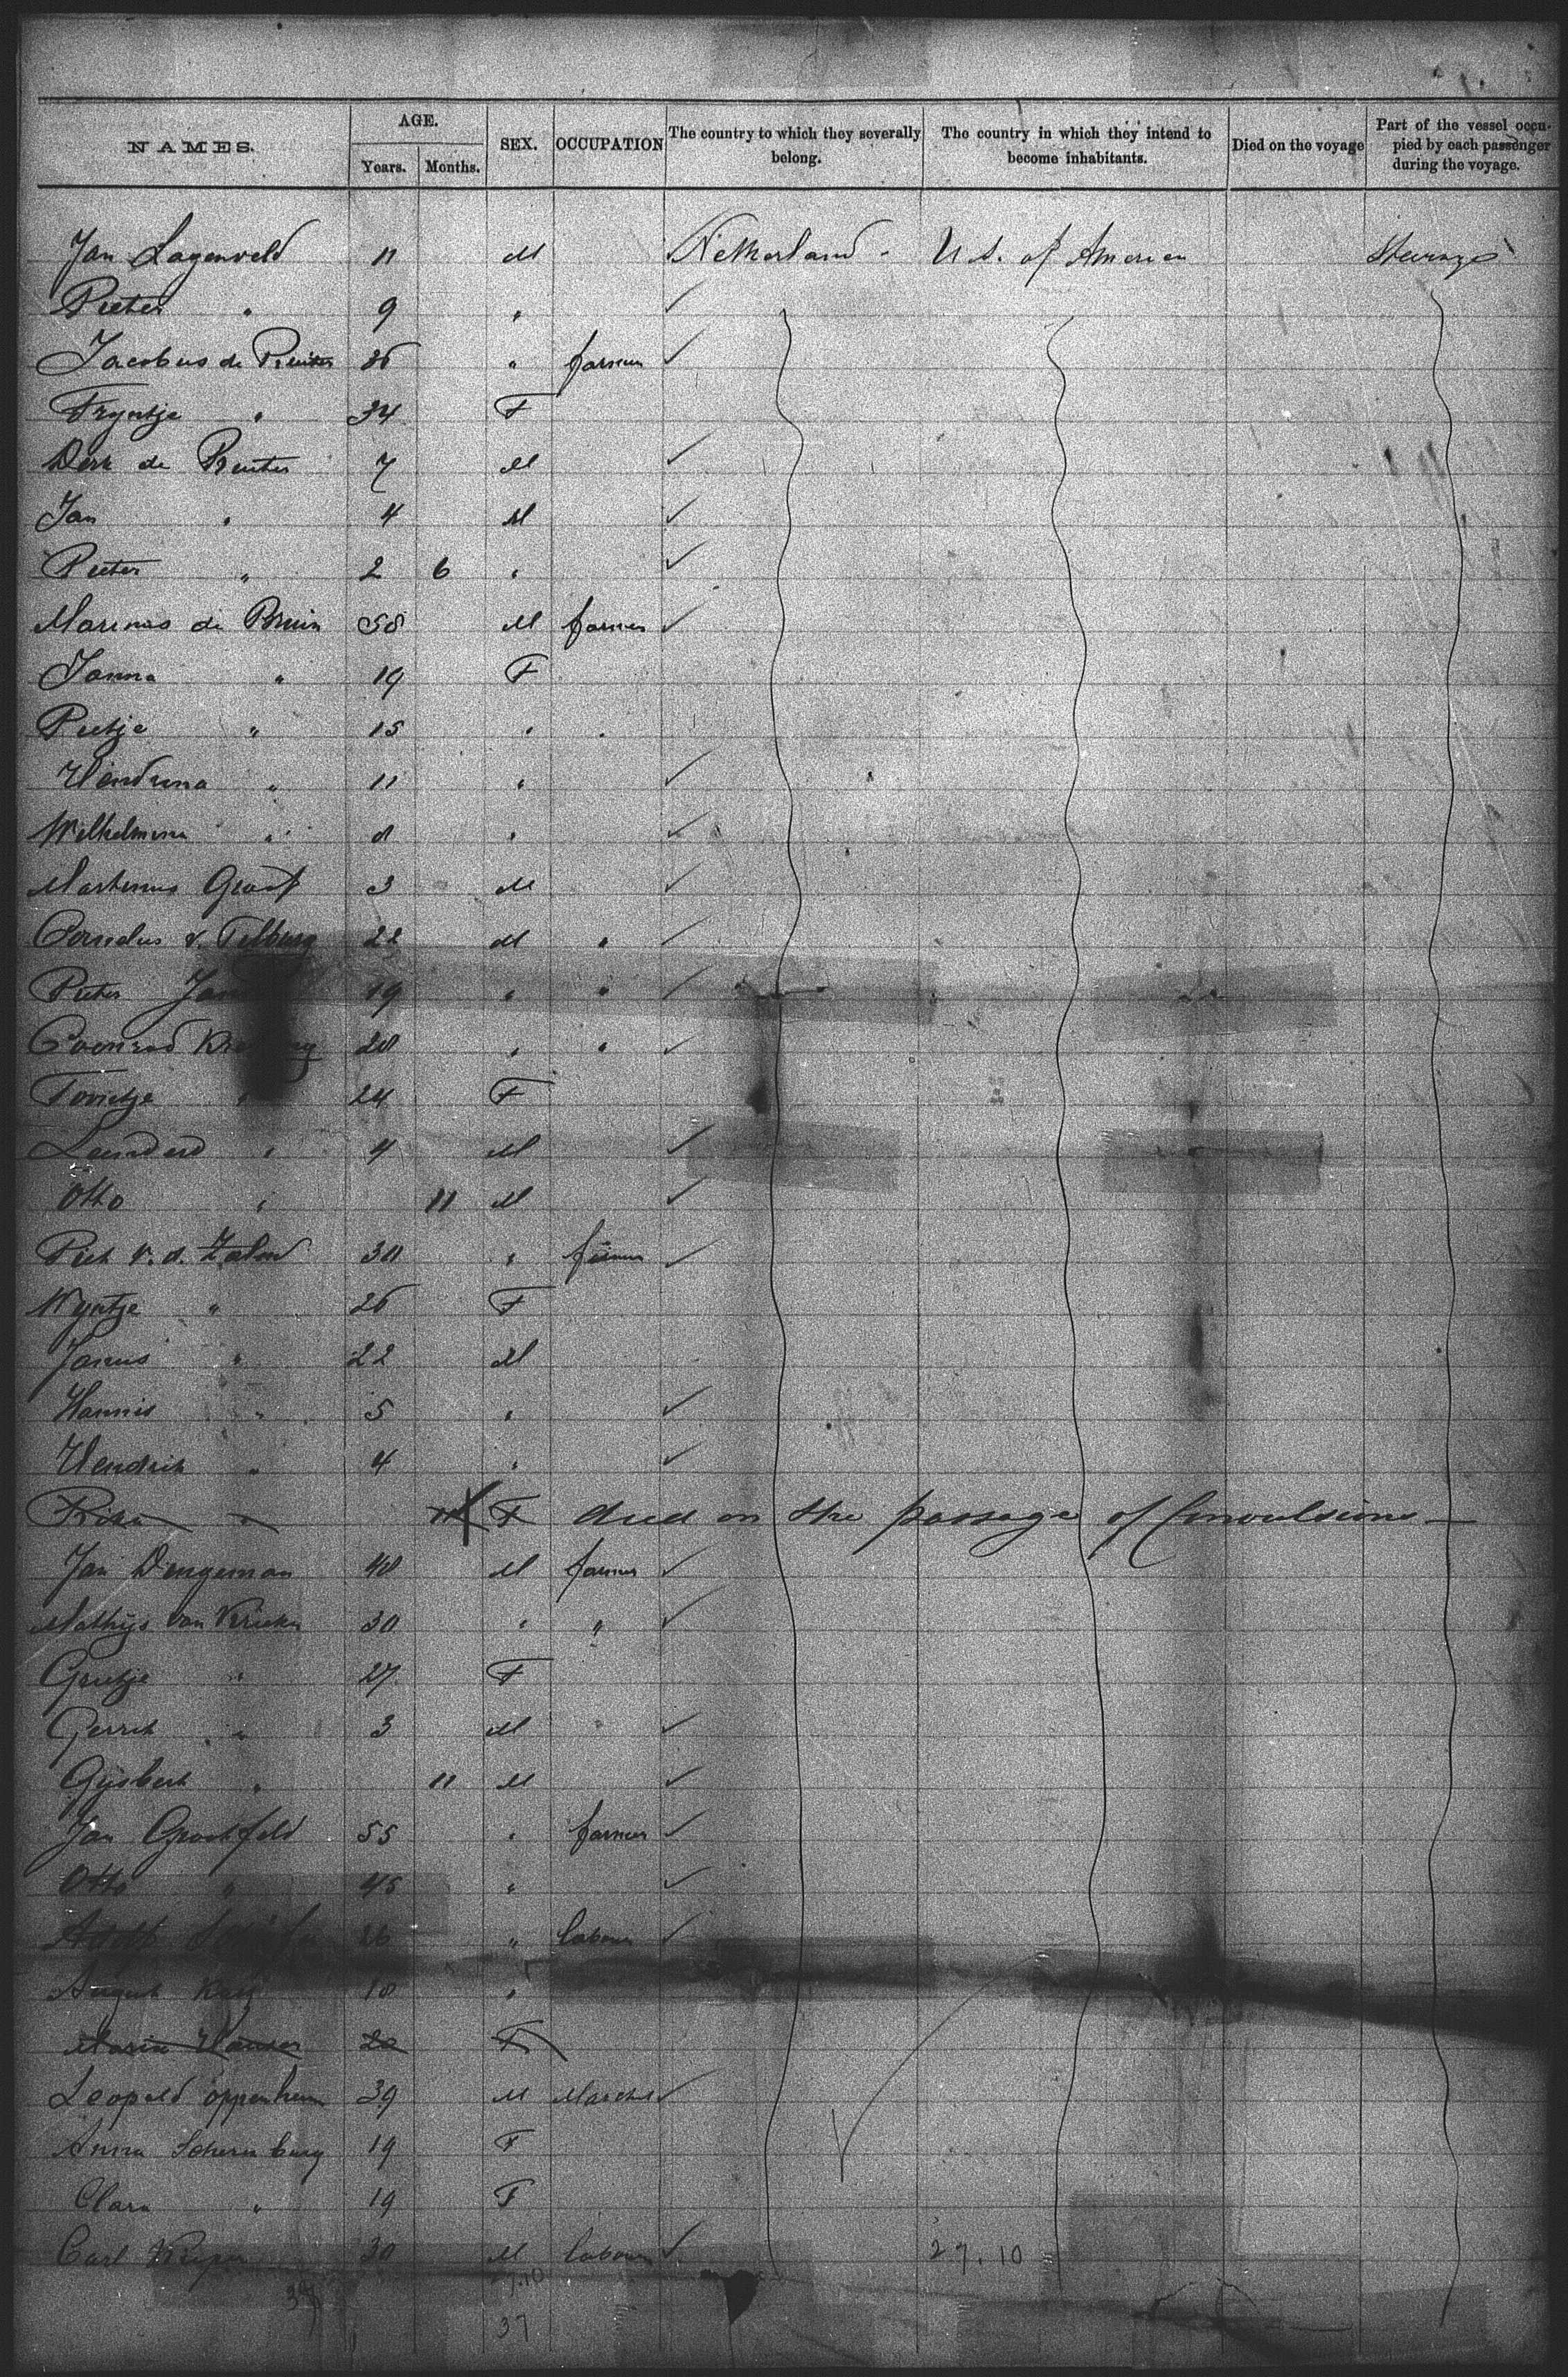 NAMES. AGE. Years. Months. SEX. OCCUPATION The country to which they severally belong. The country in which they intend to become inhabitants. Died on the voyage Part of the vessel occupied by each passenger during the voyage.
Jan Lagenveld 11 M Netherland U S. of America Steerage
Pieter " 9 "
Jacobus de Ruiter 36 " farmer
Tryntje " 34 F
Derk de Ruiter 7 M
Jan " 4 M
Pieter " 2 6 "
Marinus de Bruin 58 M farmer
Janna " 19 F
Pietje " 15 "
Hendrina " 11 "
Wilhelmina " 8 "
Martinus Groot 3 M
Cornelus v. Tilburg 22 M "
Pieter 19 " "
Coenrad 28 " "
24 F
Leenderd " 4 M
Otto " 11 M
Piet v. d. 30 " farmer
Wyntje " 26 F
Janus " 22 M
Hannis " 5 "
Hendrik " 4 "
Rika " F died on the passage of Convulsions
Jan Dingeman 48 M farmer
Mathijs van 30 " "
Grietje " 27 F
Gerrit " 3 M
Gijsbert " 11 M
Jan Grootfeld 55 " farmer
Otto " 45 "
Adolf 26 " labourer
August 18 "
Maria 22 F
Leopold Oppenheim 39 M
Anna Schernburg 19 F
Clara " 19 F
Carl 30 M labourer 27.10
39 27.10
37